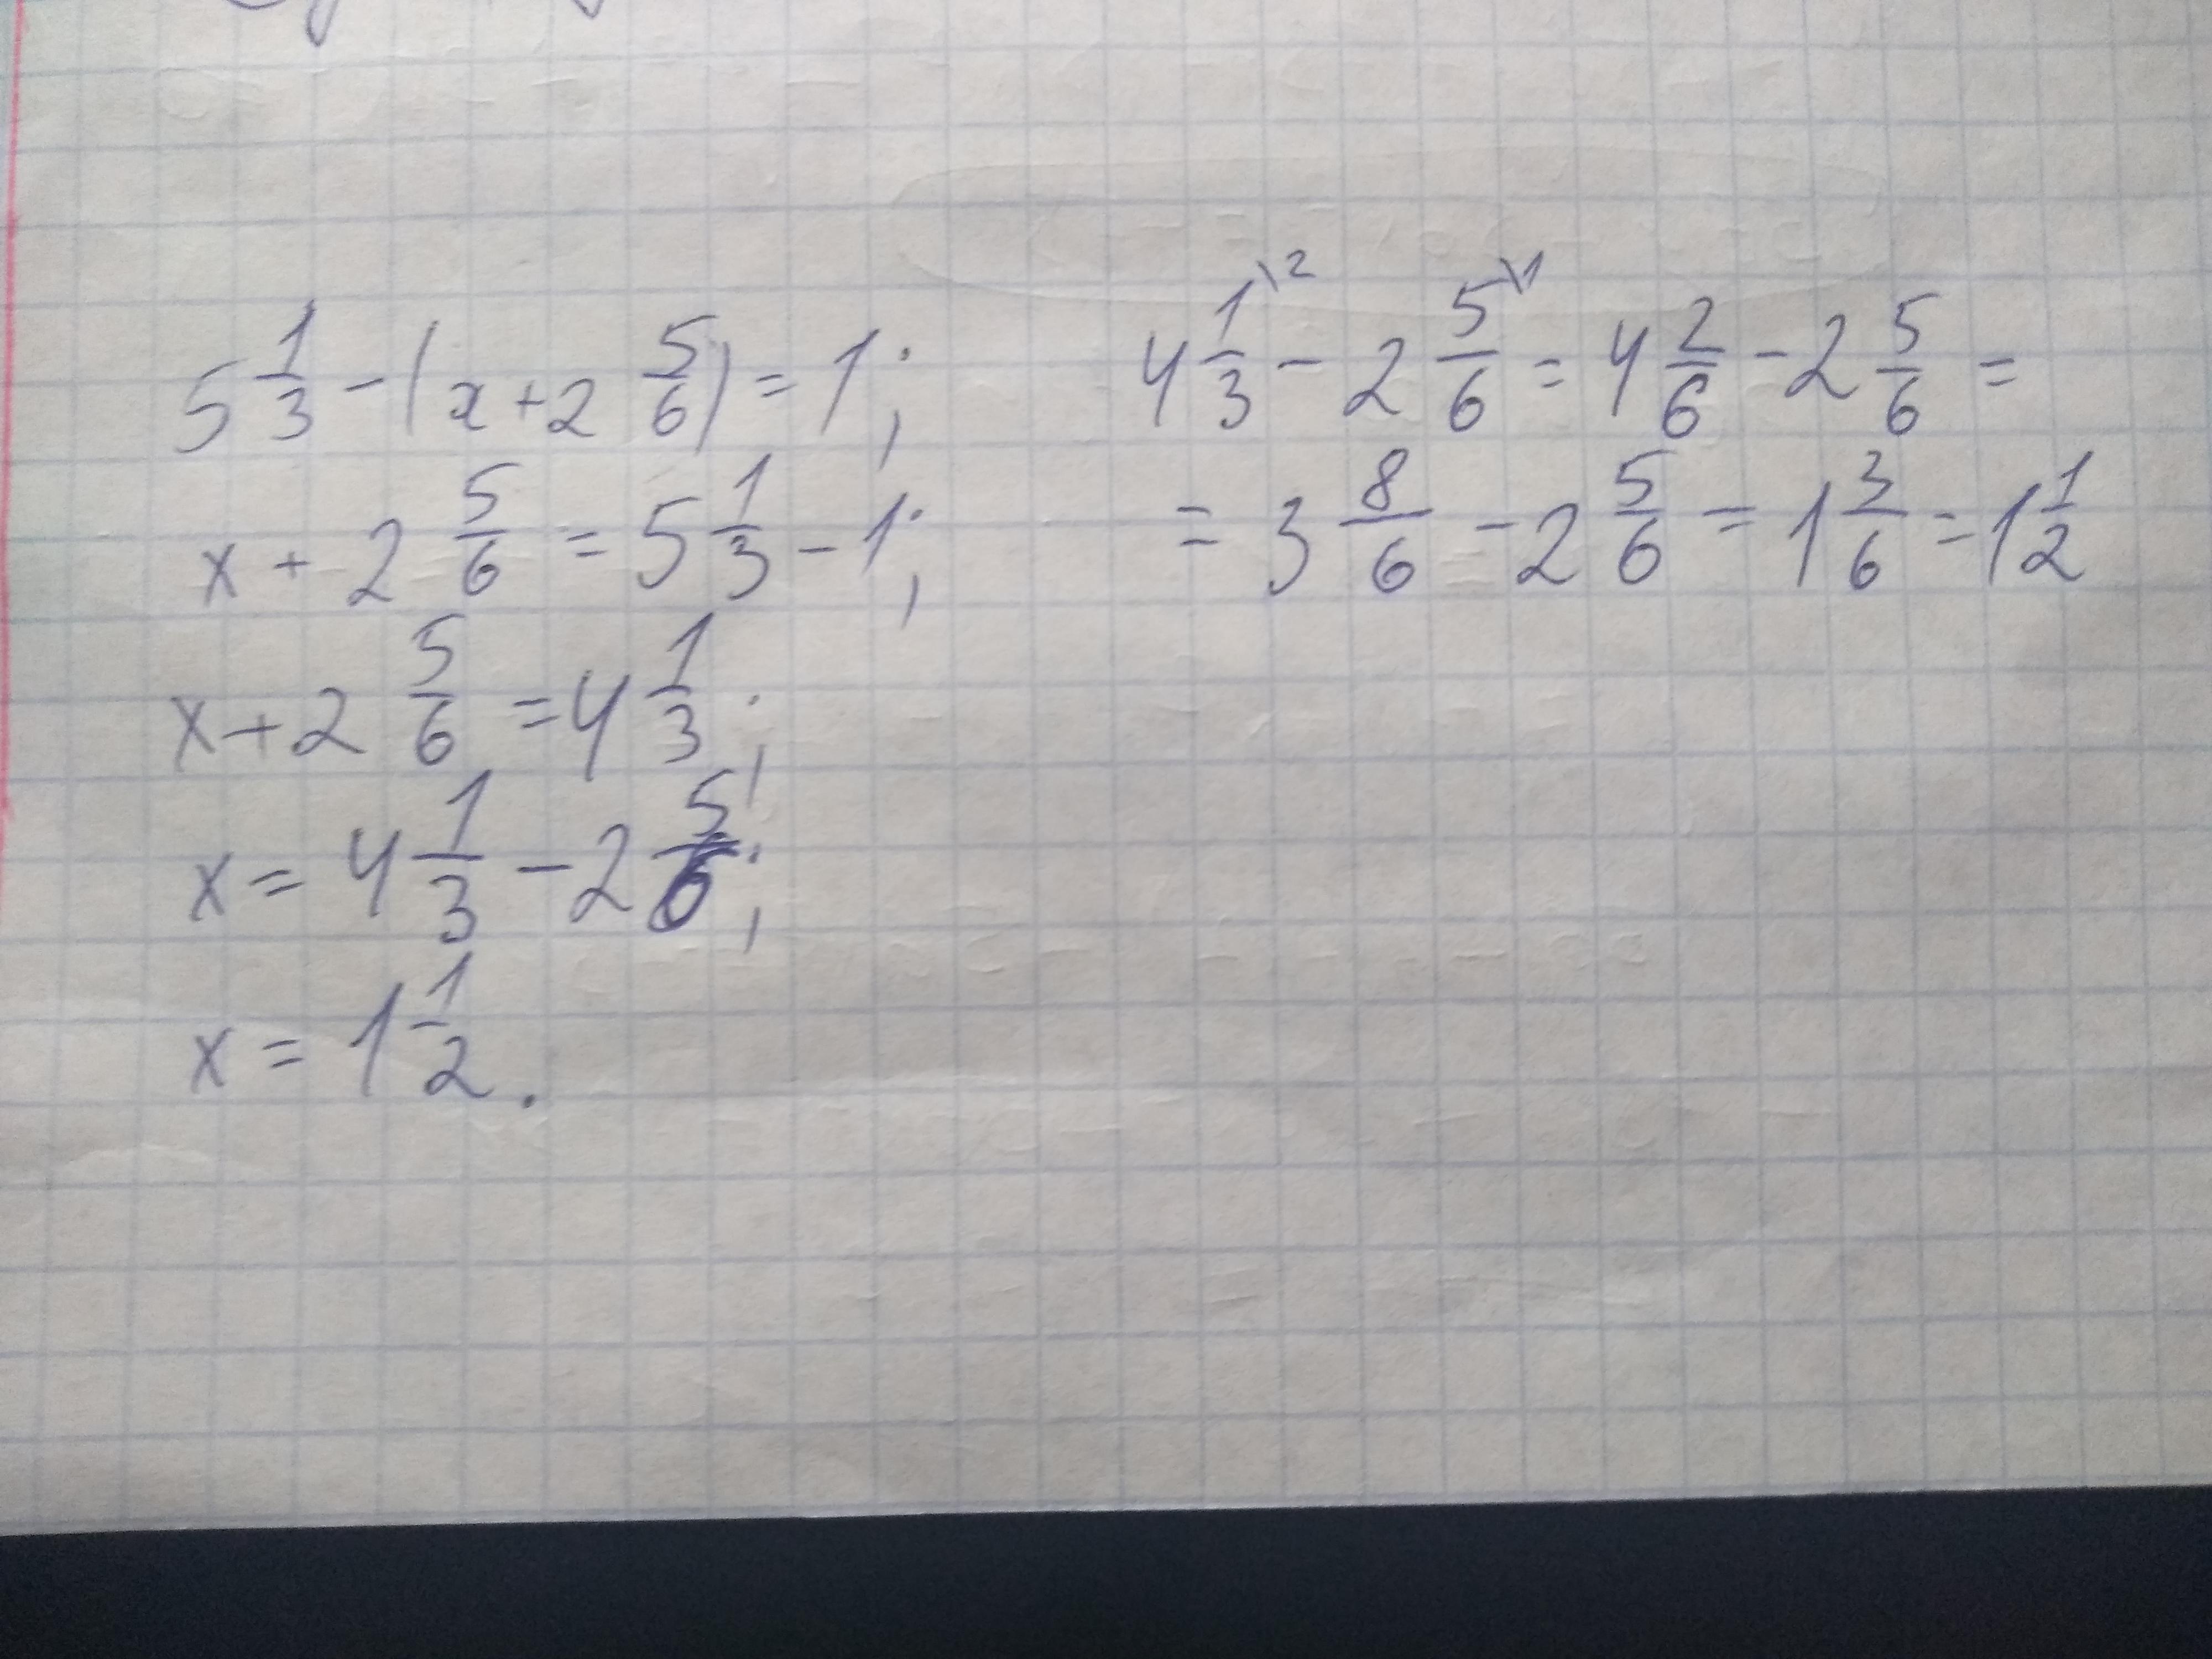 5 1/3 - (x + 2 5/6) = 1;
x + 2 5/6 = 5 1/3 - 1;
x + 2 5/6 = 4 1/3;
x = 4 1/3 - 2 5/6;
x = 1 1/2.
4 1\2/3 - 2 5\1/6 = 4 2/6 - 2 5/6 =
= 3 8/6 - 2 5/6 = 1 3/6 = 1 1/2